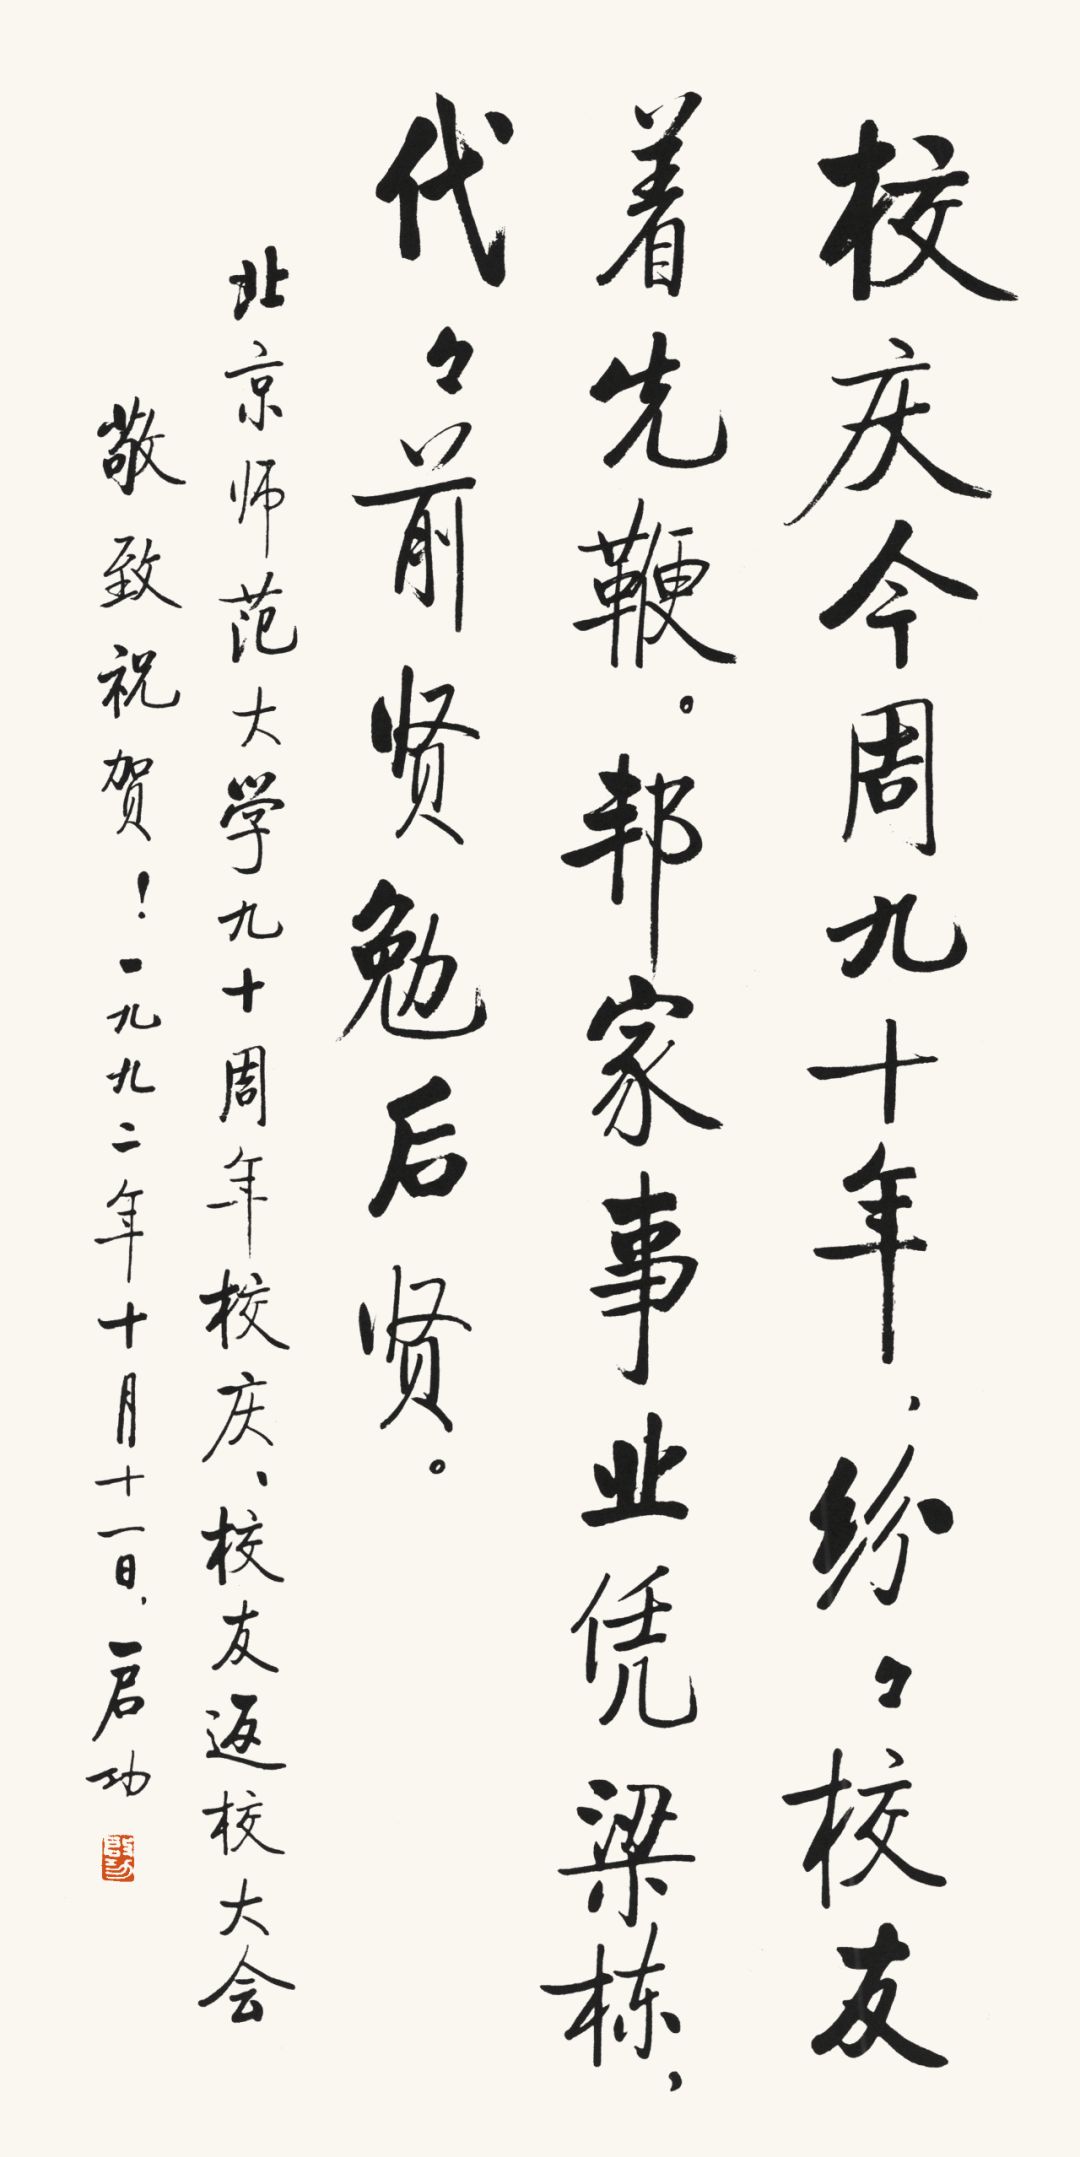 校庆今周九十年，纷々校友
着先鞭。邦家事业凭梁栋，
代々前贤勉后贤。
北京师范大学九十周年校庆、校友返校大会
敬致祝贺！一九九二年十月十一日，启功
启功